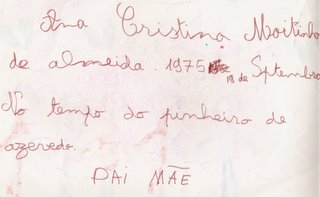 Ana Cristina Moitinho
de almeida. 1975 19 de Sptembro
No tempo do pinheiro de
azevedo.
PAI MÃE